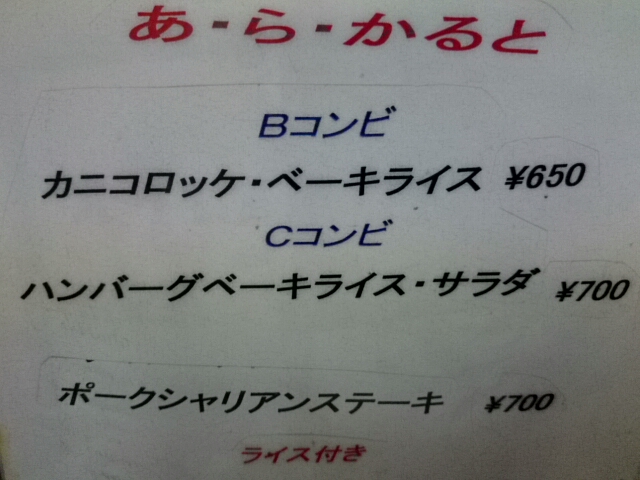 あ・ら・かると
Bコンビ
カニコロッケ・ベーキライス ¥650
Cコンビ
ハンバーグベーキライス・サラダ ¥700
ポークシャリアンステーキ ¥700
ライス付き